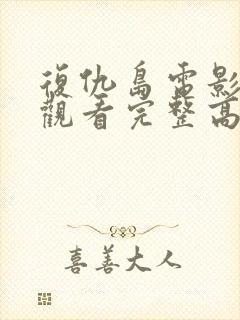 復仇島電影
觀看完整高
喜善大人